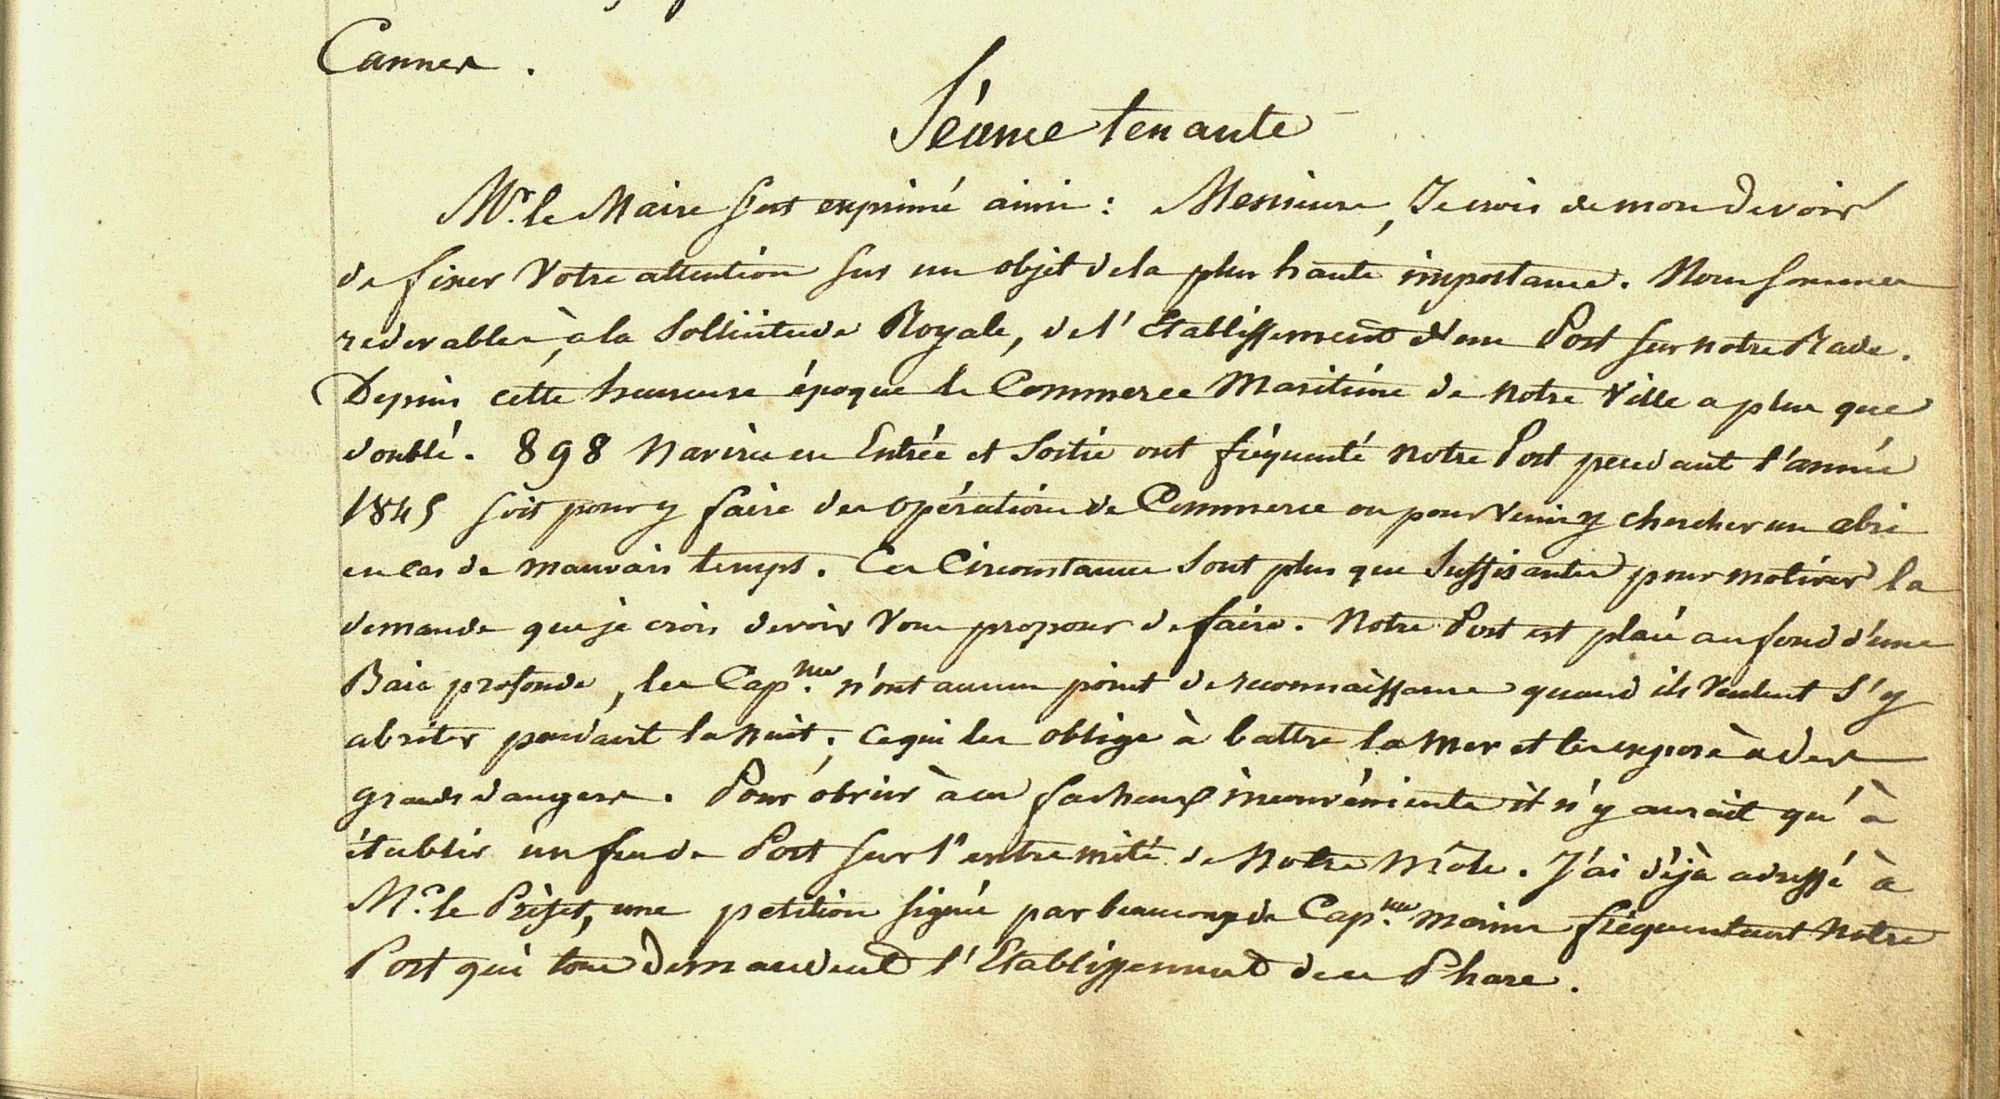 Cannes.
Séance tenante
Mr. le Maire s'est exprimé ainsi : Messieurs, Je crois de mon Devoir
de fixer Votre attention sur un objet de la plus haute importance. Nous sommes
redevables, à la Sollicitude Royale, de l'Etablissement d'un Port sur notre Rade.
Depuis cette heureuse époque le Commerce Maritime de notre Ville a plus que
doublé. 898 Navires en Entrée et Sortie ont fréquenté notre Port pendant l'année
1845 soit pour y faire des opérations de Commerce ou pour venir y chercher un abri
en cas de mauvais temps. Ces Circonstances sont plus que suffisantes pour motiver la
demande que je crois devoir Vous proposer de faire. Notre Port est placé au fond d'une
Baie profonde, les Cap.nes n'ont aucun point de reconnaissance quand ils veulent s'y
abriter pendant la nuit ; ce qui les oblige à battre la Mer et les expose à des
grands dangers. Pour obvier à ces facheux inconvénients il n'y aurait qu'à
établir un feu de Port sur l'extremité de Notre Môle. J'ai déjà adressé à
Mr. le Préfet, une petition signée par beaucoup de Cap.nes marins fréquentant Notre
Port qui tous Demandent l'Etablissement de ce Phare.